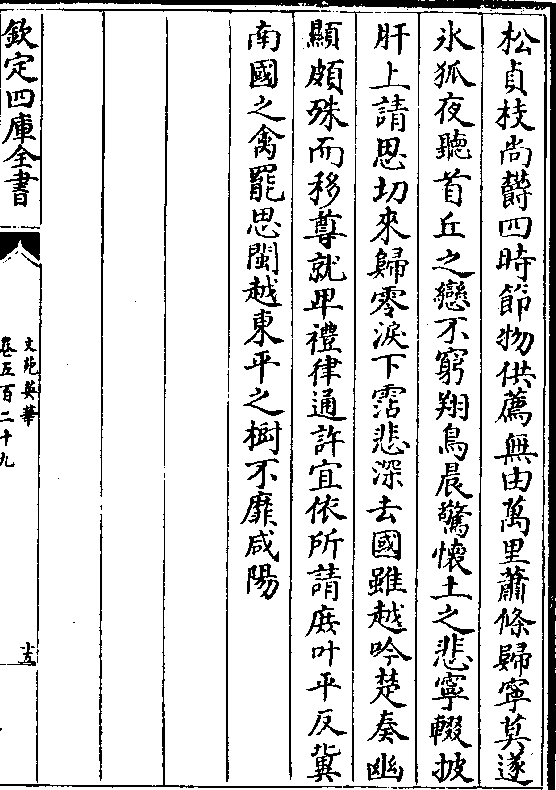 松貞枝尚欝四時節物供薦無由萬里蕭條歸寧莫遂
氷狐夜聽首丘之戀不窮翔鳥晨驚懷土之悲寧輟披
肝上請思切來歸零淚下霑悲深去國雖越吟楚奏幽
顯頗殊而移尊就卑禮律通許宜依所請庻叶平反冀
南國之禽罷思閩越東平之樹不靡咸陽
欽定四庫全書
文苑英華
卷五百二十九
十三